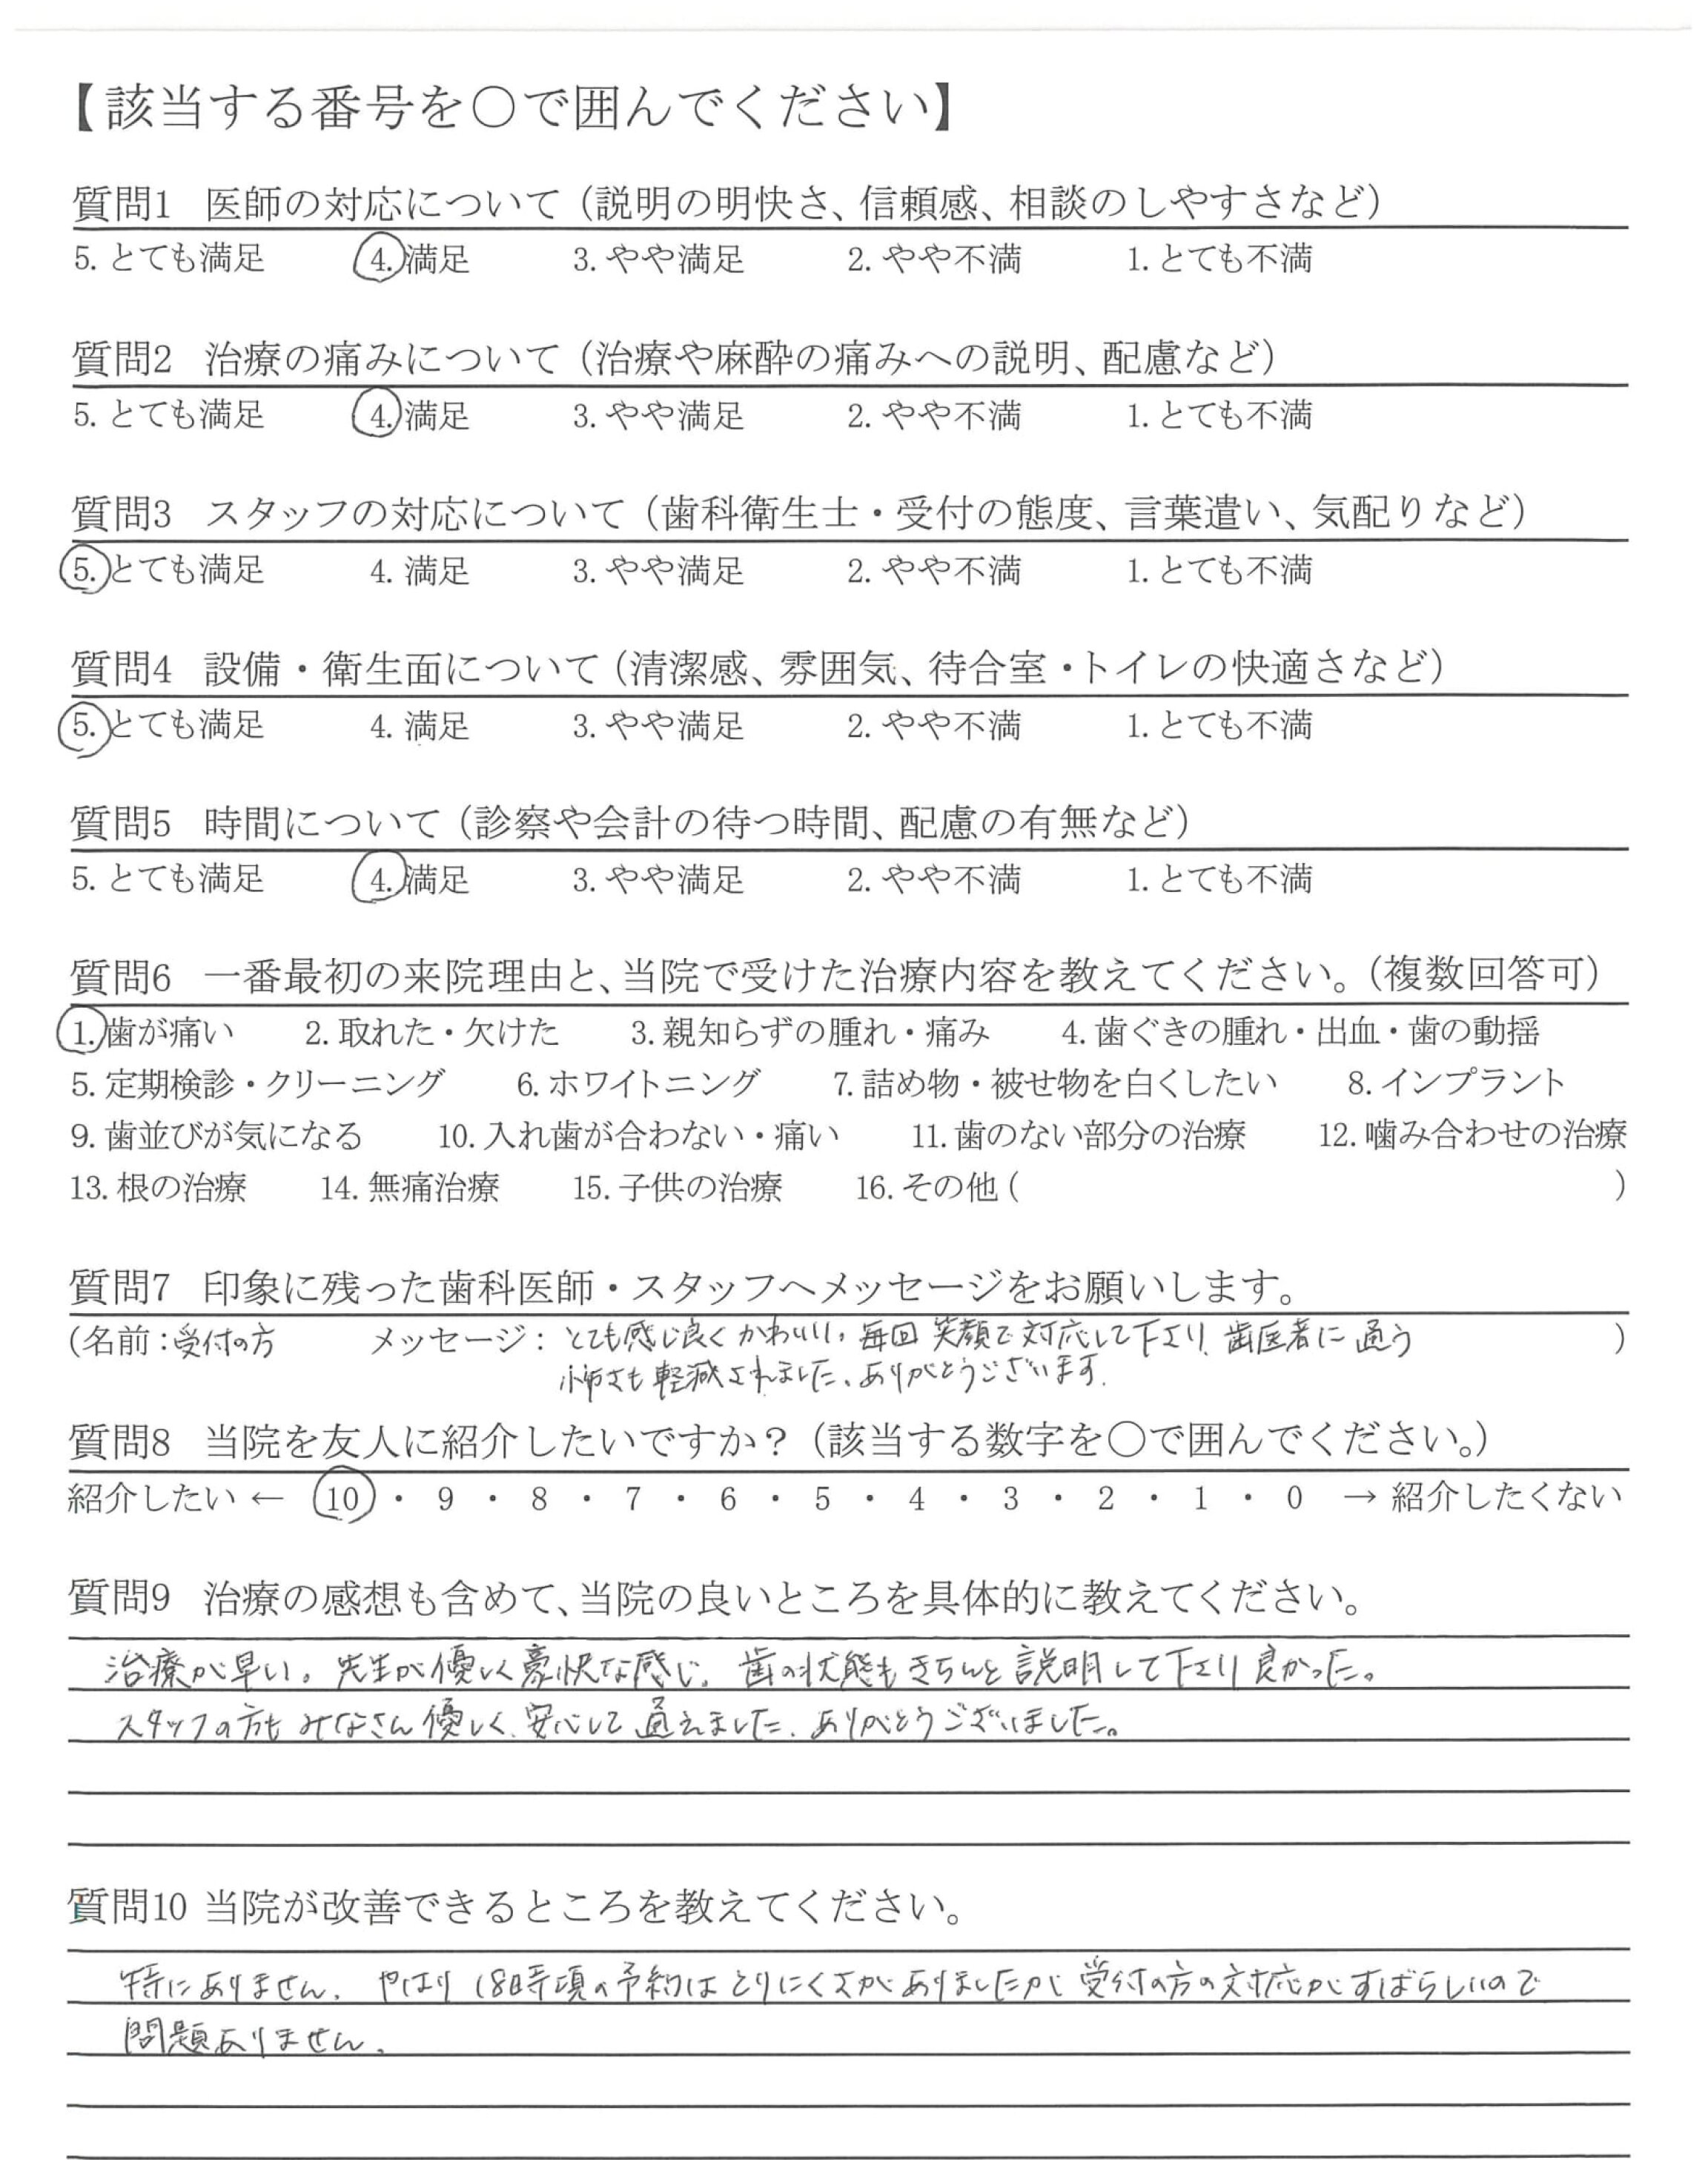 【該当する番号を〇で囲んでください】
質問1 医師の対応について（説明の明快さ、信頼感、相談のしやすさなど）
5. とても満足 4. 満足 3. やや満足 2. やや不満 1. とても不満
質問2 治療の痛みについて（治療や麻酔の痛みへの説明、配慮など）
5. とても満足 4. 満足 3. やや満足 2. やや不満 1. とても不満
質問3 スタッフの対応について（歯科衛生士・受付の態度、言葉遣い、気配りなど）
5. とても満足 4. 満足 3. やや満足 2. やや不満 1. とても不満
質問4 設備・衛生面について（清潔感、雰囲気、待合室・トイレの快適さなど）
5. とても満足 4. 満足 3. やや満足 2. やや不満 1. とても不満
質問5 時間について（診察や会計の待つ時間、配慮の有無など）
5. とても満足 4. 満足 3. やや満足 2. やや不満 1. とても不満
質問6 一番最初の来院理由と、当院で受けた治療内容を教えてください。（複数回答可）
1. 歯が痛い 2. 取れた・欠けた 3. 親知らずの腫れ・痛み 4. 歯ぐきの腫れ・出血・歯の動揺
5. 定期検診・クリーニング 6. ホワイトニング 7. 詰め物・被せ物を白くしたい 8. インプラント
9. 歯並びが気になる 10. 入れ歯が合わない・痛い 11. 歯のない部分の治療 12. 噛み合わせの治療
13. 根の治療 14. 無痛治療 15. 子供の治療 16. その他（ ）
質問7 印象に残った歯科医師・スタッフへメッセージをお願いします。
（名前：受付の方 メッセージ：とても感じ良くかわいい。毎回 笑顔で対応して下さり、歯医者に通う ）
怖さも軽減されました。ありがとうございます。
質問8 当院を友人に紹介したいですか？（該当する数字を〇で囲んでください。）
紹介したい ← 10 ・ 9 ・ 8 ・ 7 ・ 6 ・ 5 ・ 4 ・ 3 ・ 2 ・ 1 ・ 0 → 紹介したくない
質問9 治療の感想も含めて、当院の良いところを具体的に教えてください。
治療が早い。先生が優しく豪快な感じ。歯の状態もきちんと説明して下さり良かった。
スタッフの方もみなさん優しく、安心して通えました。ありがとうございました。
質問10 当院が改善できるところを教えてください。
特にありません。やはり18時頃の予約はとりにくさがありましたが受付の方の対応がすばらしいので
問題ありません。